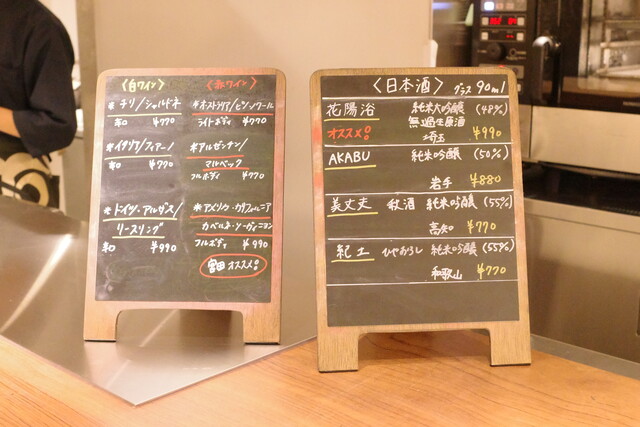 〈白ワイン〉
＊チリ/シャルドネ
辛口 ¥770
＊イタリア/フィアーノ
辛口 ¥770
＊ドイツ・アルザス/
リースリング
辛口 ¥990
〈赤ワイン〉
＊オーストラリア/ピノノワール
ライトボディ ¥770
＊アルゼンチン/
マルベック
フルボディ ¥770
＊アメリカ・カリフォルニア
カベルネ・ソーヴィニヨン
フルボディ ¥990
宮田オススメ!
〈日本酒〉 グラス 90ml
花陽浴 純米大吟醸 (48%)
オススメ! 無濾過生原酒
埼玉 ¥990
AKABU 純米吟醸 (50%)
岩手 ¥880
美丈夫 秋酒 純米吟醸 (55%)
高知 ¥770
紀土 ひやおろし 純米吟醸 (55%)
和歌山 ¥770